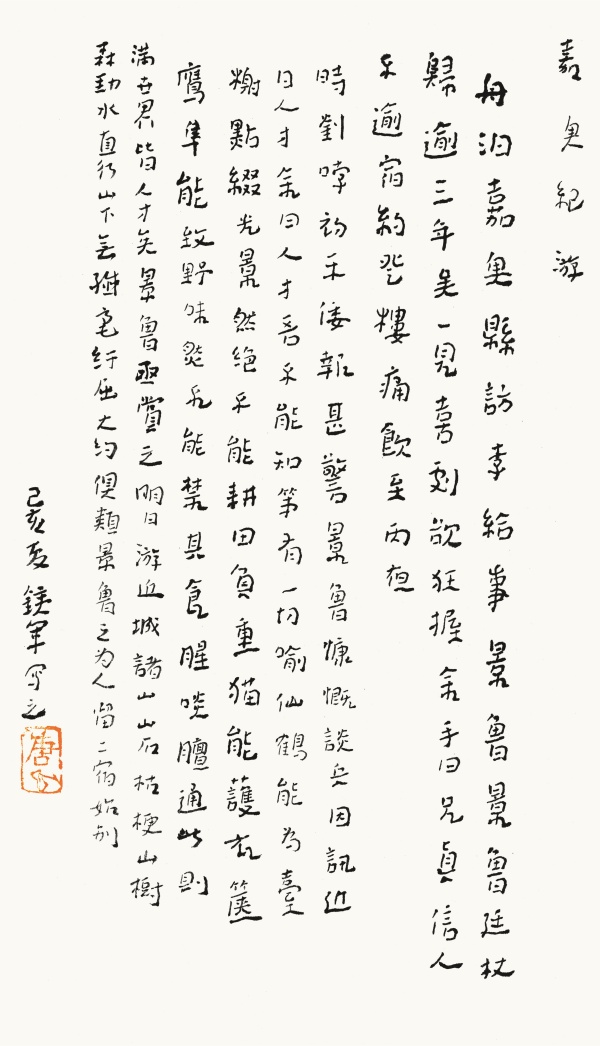 嘉魚紀游
舟泊嘉魚縣訪李給事景魯景魯廷杖
歸逾三年矣一見喜劇欲狂握余手曰兄真信人
不逾宿約登樓痛飲至丙夜
時劉哱初平倭報甚警景魯慷慨談兵因訊近
日人才余曰人才吾不能知第有一切喻仙鶴能為臺
榭點綴光景然絕不能耕田負重猫能護衣篋
鷹隼能致野味然不能禁其食腥啖膻通此則
滿世界皆人才矣景魯亟賞之明日游近城諸山山石枯梗山樹
森勁水直行山下無纖毫紆屈大約俱類景魯之為人留二宿始別
己亥夏鐵軍寫之
唐